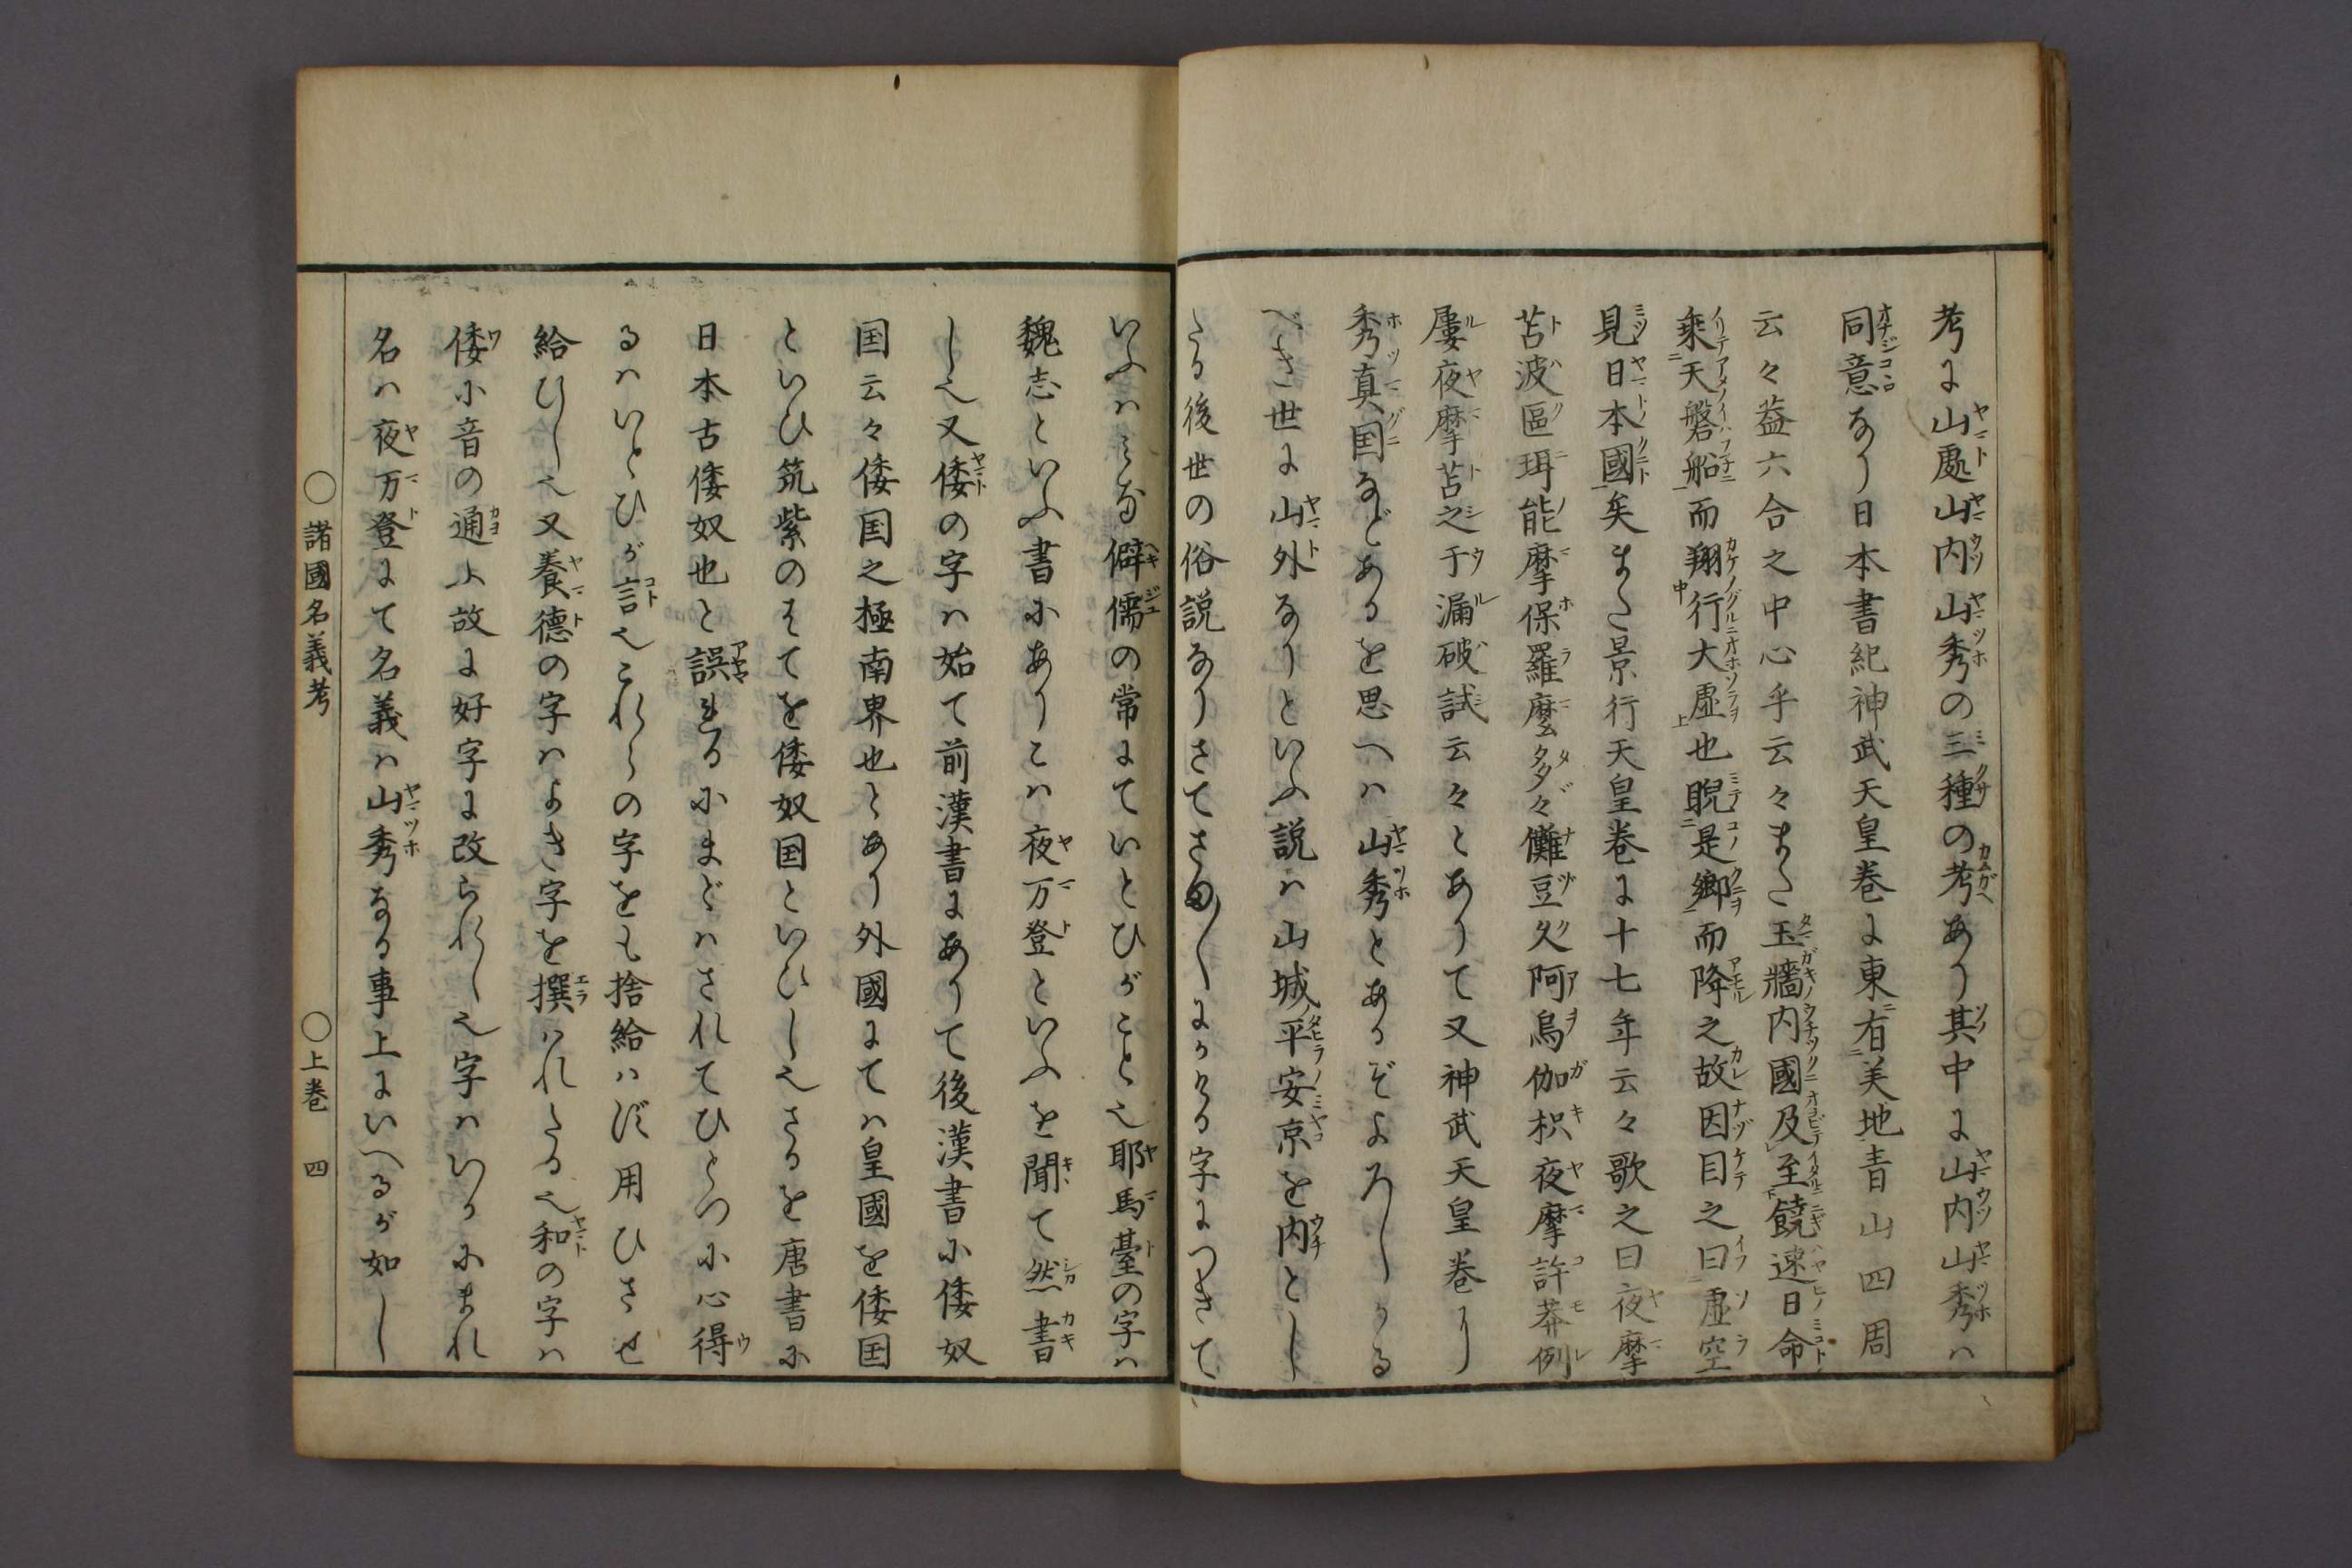 考に山處山内山秀の三種の考あり其中に山内山秀ハ
同意なり日本書紀神武天皇巻に東有美地青山四周
云々蓋六合之中心乎云々また玉牆内國及至饒速日命
乗天磐船而翔行大虚也睨是郷而降之故因目之曰虚空
見日本國矣また景行天皇巻に十七年云々歌之曰夜摩
苫波區珥能摩保羅麼多々儺豆久阿烏伽枳夜摩許莽例
屢夜摩苫之于漏破試云々とありて又神武天皇巻に
秀真国などあるを思へハ山秀とあるぞよろしかる
べき世に山外なりといふ説ハ山城平安京を内とし
たる後世の俗説なりさてさま〴〵にかける字につきて
いふハミな僻儒の常にていとひがこと也耶馬臺の字ハ
魏志といふ書にありこハ夜万登といふを聞て然書
し也又倭の字ハ始て前漢書にありて後漢書に倭奴
国云々倭国之極南界也とあり外國にてハ皇國を倭国
といひ筑紫のはてを倭奴国といひし也さるを唐書に
日本古倭奴也と誤れるにまどハされてひとつに心得
るハいとひが言也これらの字をも捨給ハず用ひさせ
給ひし也又養徳の字ハよき字を撰ハれたる也和の字ハ
倭に音の通ふ故に好字に改られし也字ハいかにまれ
名ハ夜万登にて名義ハ山秀なる事上にいへるが如し
○諸國名義考　○上巻　四